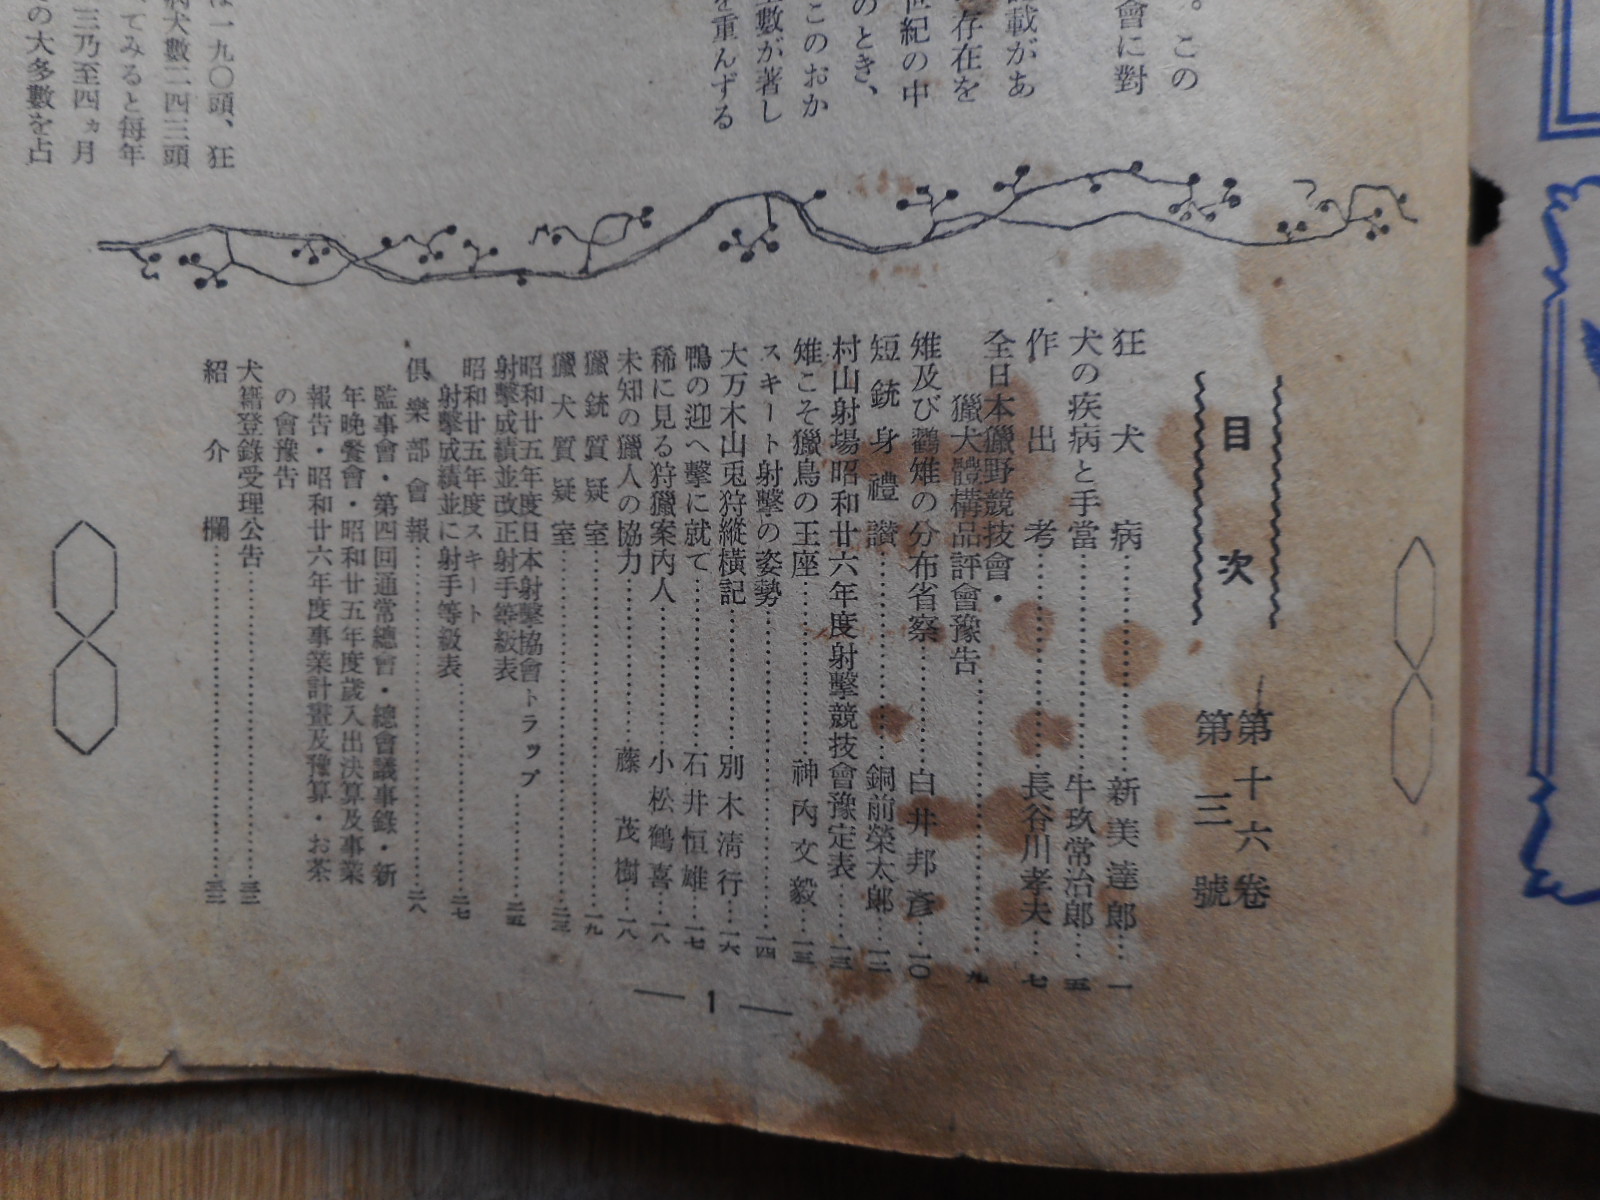 。この
會に對
載があ
存在を
世紀の中
のとき、
このおか
數が著し
を重んずる
は一九〇頭、狂
病犬數二四三頭
てみると毎年
三乃至四ヵ月
の大多數を占
目次
第十六卷
第三號
狂犬病…………新美達郎…一
犬の疾病と手當…………牛玖常治郎…五
作出考…………長谷川孝夫…七
全日本獵野競技會・
獵犬體構品評會豫告…………九
雉及び鸐雉の分布省察…………白井邦彦…一〇
短銃身禮讃…………銅前榮太郎…一二
村山射場昭和廿六年度射擊競技會豫定表…一三
雉こそ獵鳥の王座…………神內文毅…一三
スキート射擊の姿勢…………一四
大万木山兎狩縱橫記…………別木淸行…一六
鴨の迎へ擊に就て…………石井恒雄…一七
稀に見る狩獵案內人…………小松鶴喜…一八
未知の獵人の協力…………藤茂樹…一八
獵銃質疑室…………一九
獵犬質疑室…………二三
昭和廿五年度日本射擊協會トラップ
射擊成績並改正射手等級表…………二五
昭和廿五年度スキート
射擊成績並に射手等級表…………二七
俱樂部會報…………二八
監事會・第四回通常總會・總會議事錄・新
年晩餐會・昭和廿五年度歲入出決算及事業
報告・昭和廿六年度事業計畫及豫算・お茶
の會豫告
犬籍登錄受理公告…………三三
紹介欄…………三三
— 1 —